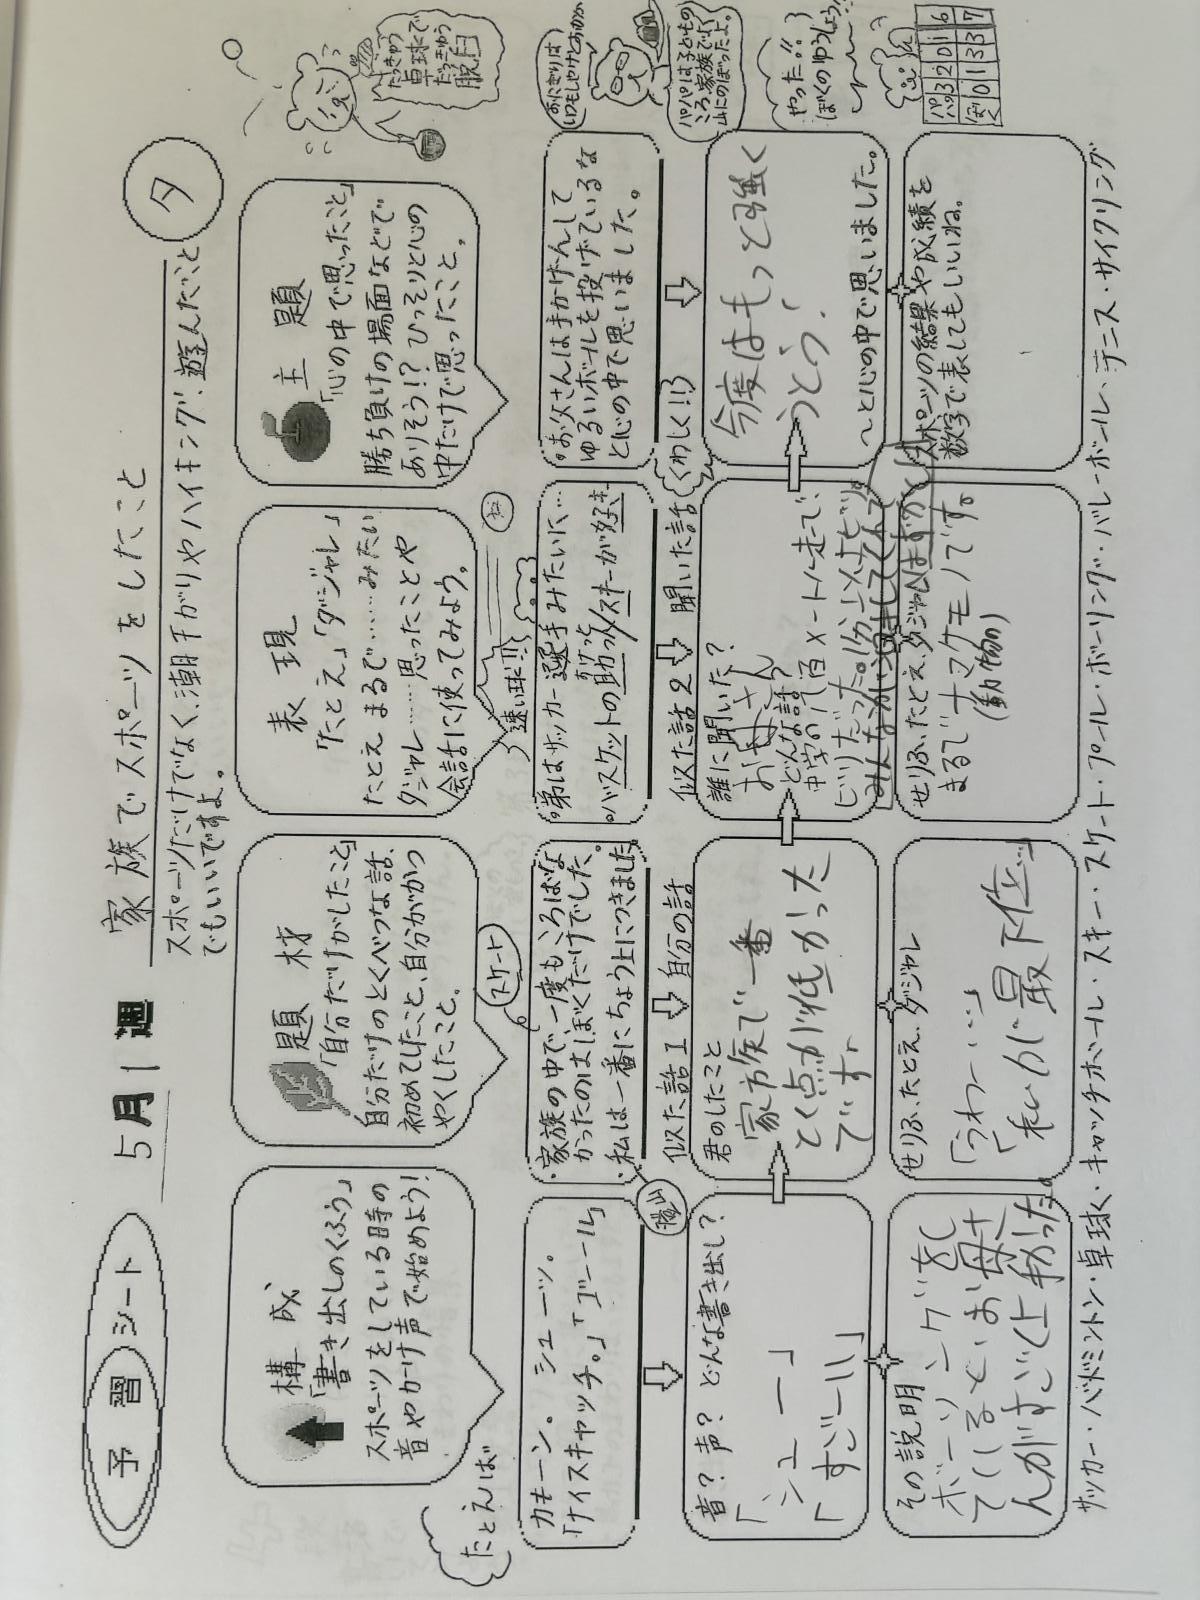 予習シート
5月1週
家族でスポーツをしたこと
スポーツだけでなく、潮干がりやハイキング、遊んだこと
でもいいですよ。
夕
構成
「書き出しのくふう」
スポーツをしている時の
音やかけ声で始めよう!
題材
「自分だけがしたこと」
自分だけのとくべつな話、
初めてしたこと、自分がかつ
やくしたこと。
表現
「たとえ」「ダジャレ」
たとえ まるで……みたい
ダジャレ……思ったことや
会話に使ってみよう。
主題
「心の中で思ったこと」
勝ち負けの場面などで
ありそう!? ひっそりと心の
中だけで思ったこと。
たっきゅう
卓球で
だっきゅう
脱臼
たとえば
カキーン。シューッ。
「ナイスキャッチ。」「ゴール」
スケート
・家族の中で、一度もころばな
かったのはぼくだけでした。
・私は一番にちょう上につきました
登山
速い球!!
・弟はサッカー選手みたいに…
・バスケットの助っ人
スキーが好き
・お父さんは手かげんして
ゆるいボールを投げているな
と心の中で思いました。
おにぎりは
いつもしゃけとおかか
パパは子どもの
ころ、家族で
山にのぼったよ。
音?声?どんな書き出し?
「シューー」
「すごーい」
似た話1 自分の話
君のしたこと
家族で一番
とく点が低かった
です
似た話2 聞いた話
くわしく!!
誰に聞いた?
お母さん
どんな話?
中学の1500メートル走で、
今度はもっと強く
うとう!
〜と心の中で思いました。
やった!!
ぼくのゆうしょう
その説明
ボーリングをし
ているとお母さ
んがすごく上手かった。
せりふ、たとえ、ダジャレ
「うわー…」
「私が最下位…」
せりふ、たとえ、ダジャレ
まるでナマケモノです。
(動物)
スポーツの結果や成績を
数字で表してもいいね。
パパ 3 2 0 1 6
ぼく 0 1 3 3 7
サッカー・バドミントン・卓球・キャッチボール・スキー・スケート・プール・ボーリング・バレーボール・テニス・サイクリング